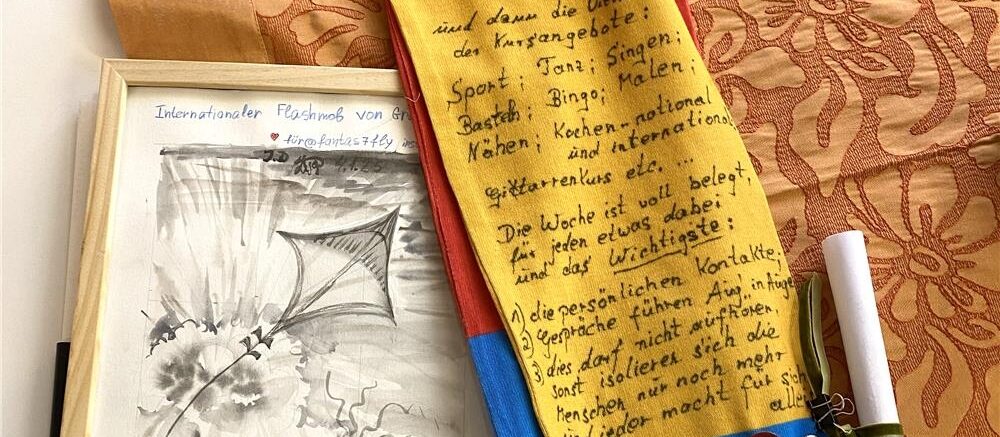 Internationaler Flashmob von
für@fantas7fly
J.D
und dann die
der Kursangebote:
Sport; Tanz; Singen;
Basteln; Bingo; Malen;
Nähen; Kochen-national
und international
Gittarrenkurs etc. ...
Die Woche ist voll belegt,
für jeden etwas dabei
und das Wichtigste:
1) die persönlichen Kontakte;
2) Gespräche führen Aug" in
3) dies darf nicht aufhören,
sonst isolieren sich die
Menschen nur noch mehr
jeder macht für sich